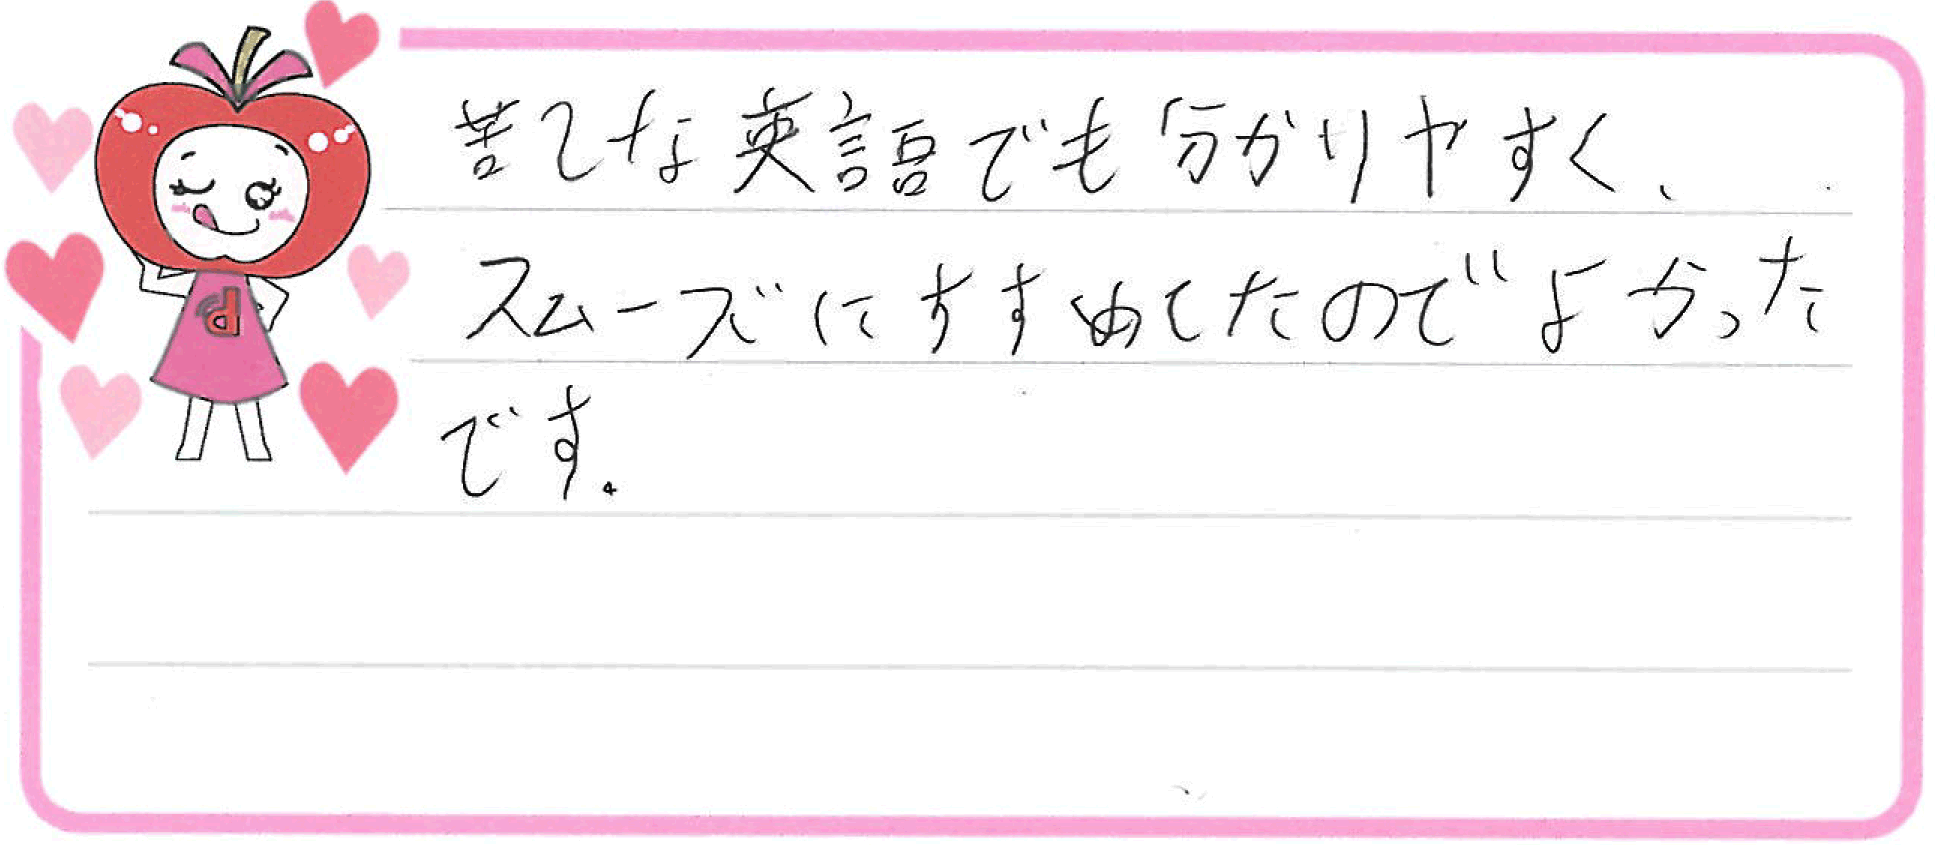 苦てな英語でも分かりやすく、
スムーズにすすめてたのでよかった
です。